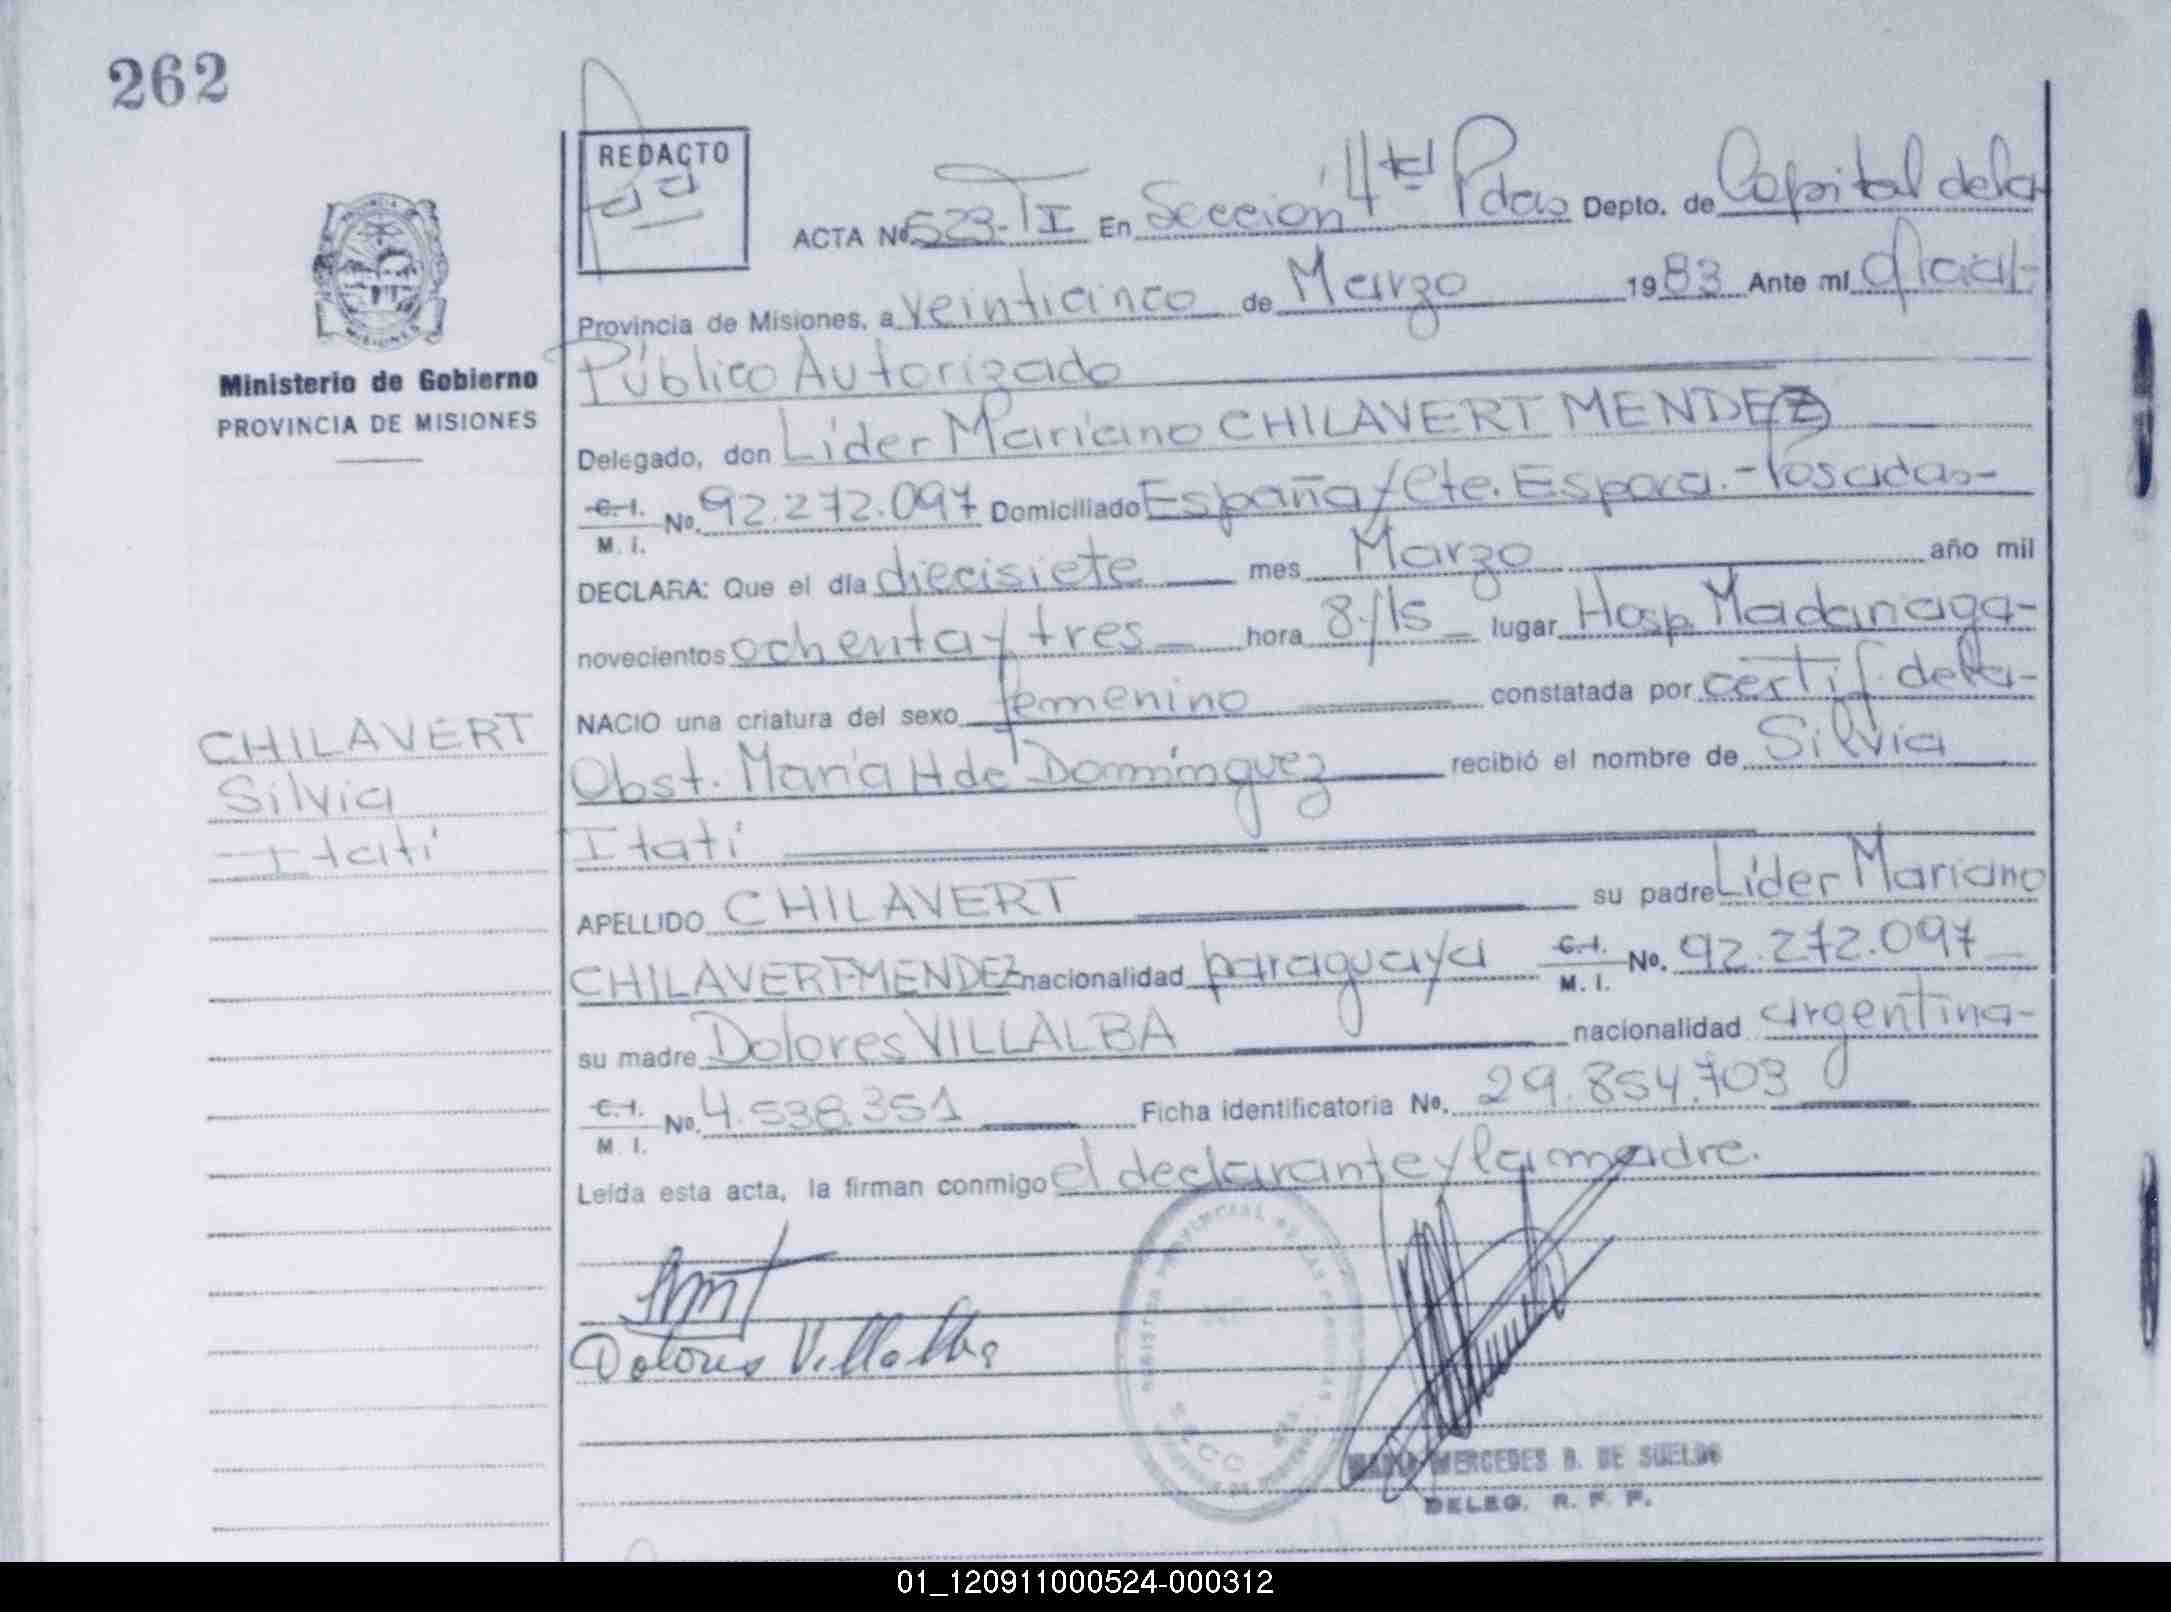 262
REDACTO
ACTA Nº 523-TI En Sección 4ta Pdas Depto. de Capital de la
Provincia de Misiones, a veinticinco de Marzo 1983 Ante mí Oficial
Público Autorizado
Ministerio de Gobierno
PROVINCIA DE MISIONES
Delegado, don Líder Mariano CHILAVERT MENDEZ
C.I. M.I. No. 92.272.097 Domiciliado España y Cte. Espora.-Posadas-
DECLARA: Que el día diecisiete mes Marzo año mil
novecientos ochenta y tres hora 8y15 lugar Hosp. Madariaga-
NACIO una criatura del sexo femenino constatada por certif. de la-
CHILAVERT
Silvia
Itatí
Obst. María H. de Domínguez recibió el nombre de Silvia
Itatí
APELLIDO CHILAVERT su padre Líder Mariano
CHILAVERT-MENDEZ nacionalidad paraguaya C.I. M.I. No. 92.272.097
su madre Dolores VILLALBA nacionalidad argentina-
C.I. M.I. No. 4.538.351 Ficha identificatoria No. 29.854.703
Leída esta acta, la firman conmigo el declarante y la madre.
Dolores Villalba
MERCEDES B. DE SUELDO
DELEG. R. P. P.
01_120911000524-000312